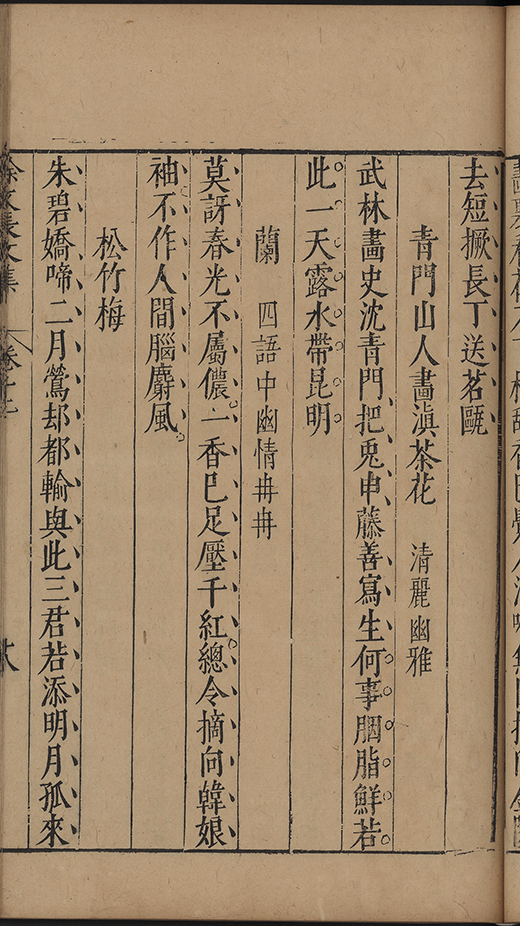 去短撅長丁送茗甌
青門山人畫滇茶花　清麗幽雅
武林畫史沈青門把兎申藤善寫生何事胭脂鮮若
此一天露水帶昆明
蘭　四語中幽情冉冉
莫訝春光不屬儂一香巳足壓千紅總令摘向韓娘
袖不作人間腦麝風
松竹梅
朱碧嬌啼二月鶯却都輸與此三君若添明月孤來
徐文長文集　卷十二